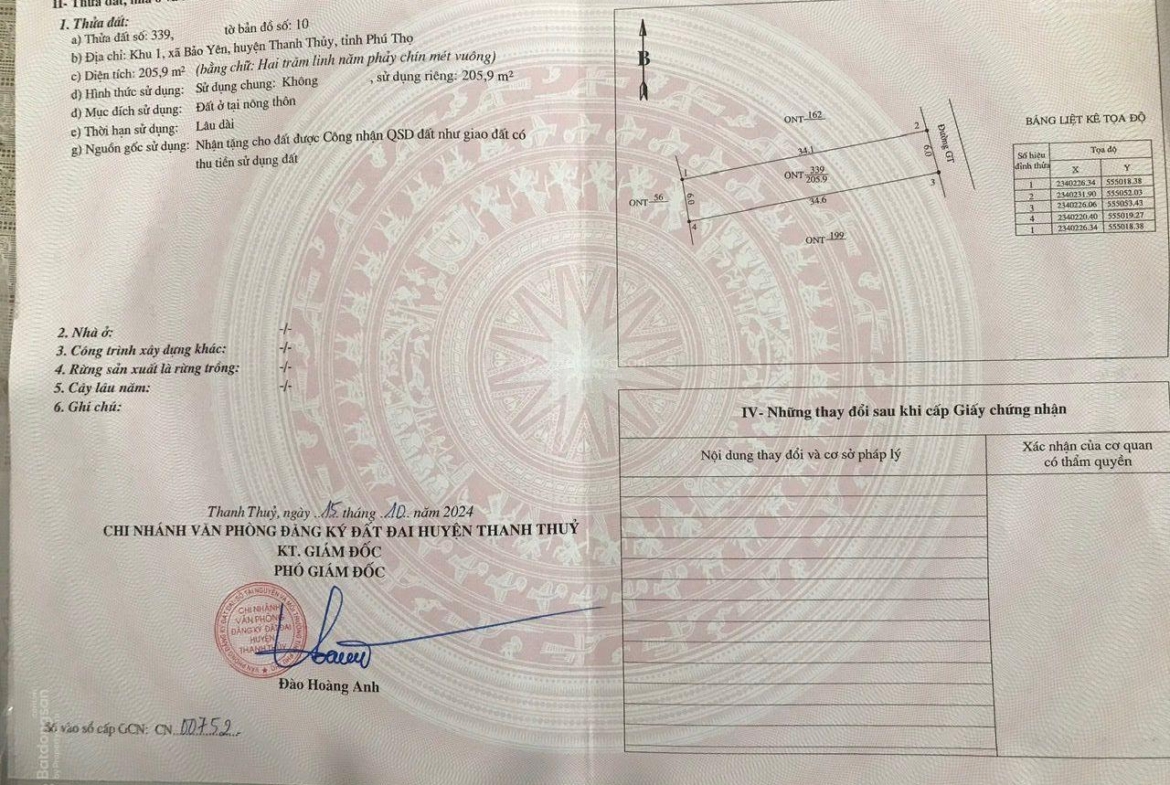 II- Thửa đất,
1. Thửa đất:
a) Thửa đất số: 339, tờ bản đồ số: 10
b) Địa chỉ: Khu 1, xã Bảo Yên, huyện Thanh Thủy, tỉnh Phú Thọ
c) Diện tích: 205,9 m² (bằng chữ: Hai trăm linh năm phảy chín mét vuông)
d) Hình thức sử dụng: Sử dụng chung: Không , sử dụng riêng: 205,9 m²
đ) Mục đích sử dụng: Đất ở tại nông thôn
e) Thời hạn sử dụng: Lâu dài
g) Nguồn gốc sử dụng: Nhận tặng cho đất được Công nhận QSD đất như giao đất có
thu tiền sử dụng đất
2. Nhà ở: -/-
3. Công trình xây dựng khác: -/-
4. Rừng sản xuất là rừng trồng: -/-
5. Cây lâu năm: -/-
6. Ghi chú:
Thanh Thuỷ, ngày 15 tháng 10 năm 2024
CHI NHÁNH VĂN PHÒNG ĐĂNG KÝ ĐẤT ĐAI HUYỆN THANH THUỶ
KT. GIÁM ĐỐC
PHÓ GIÁM ĐỐC
CHI NHÁNH
VĂN PHÒNG
ĐĂNG KÝ ĐẤT ĐAI
HUYỆN
THANH THUỶ
Đào Hoàng Anh
Số vào sổ cấp GCN: CN 00752
Batdongsan
B
ONT 162
2
1
34.1
6.0
Đường GT
ONT 339
205.9
3
ONT 56
6.0
34.6
4
ONT 199
BẢNG LIỆT KÊ TỌA ĐỘ
Số hiệu đỉnh thửa Tọa độ
X Y
1 2340226.34 555018.38
2 2340231.90 555052.03
3 2340226.06 555053.43
4 2340220.40 555019.27
1 2340226.34 555018.38
IV- Những thay đổi sau khi cấp Giấy chứng nhận
Nội dung thay đổi và cơ sở pháp lý
Xác nhận của cơ quan
có thẩm quyền